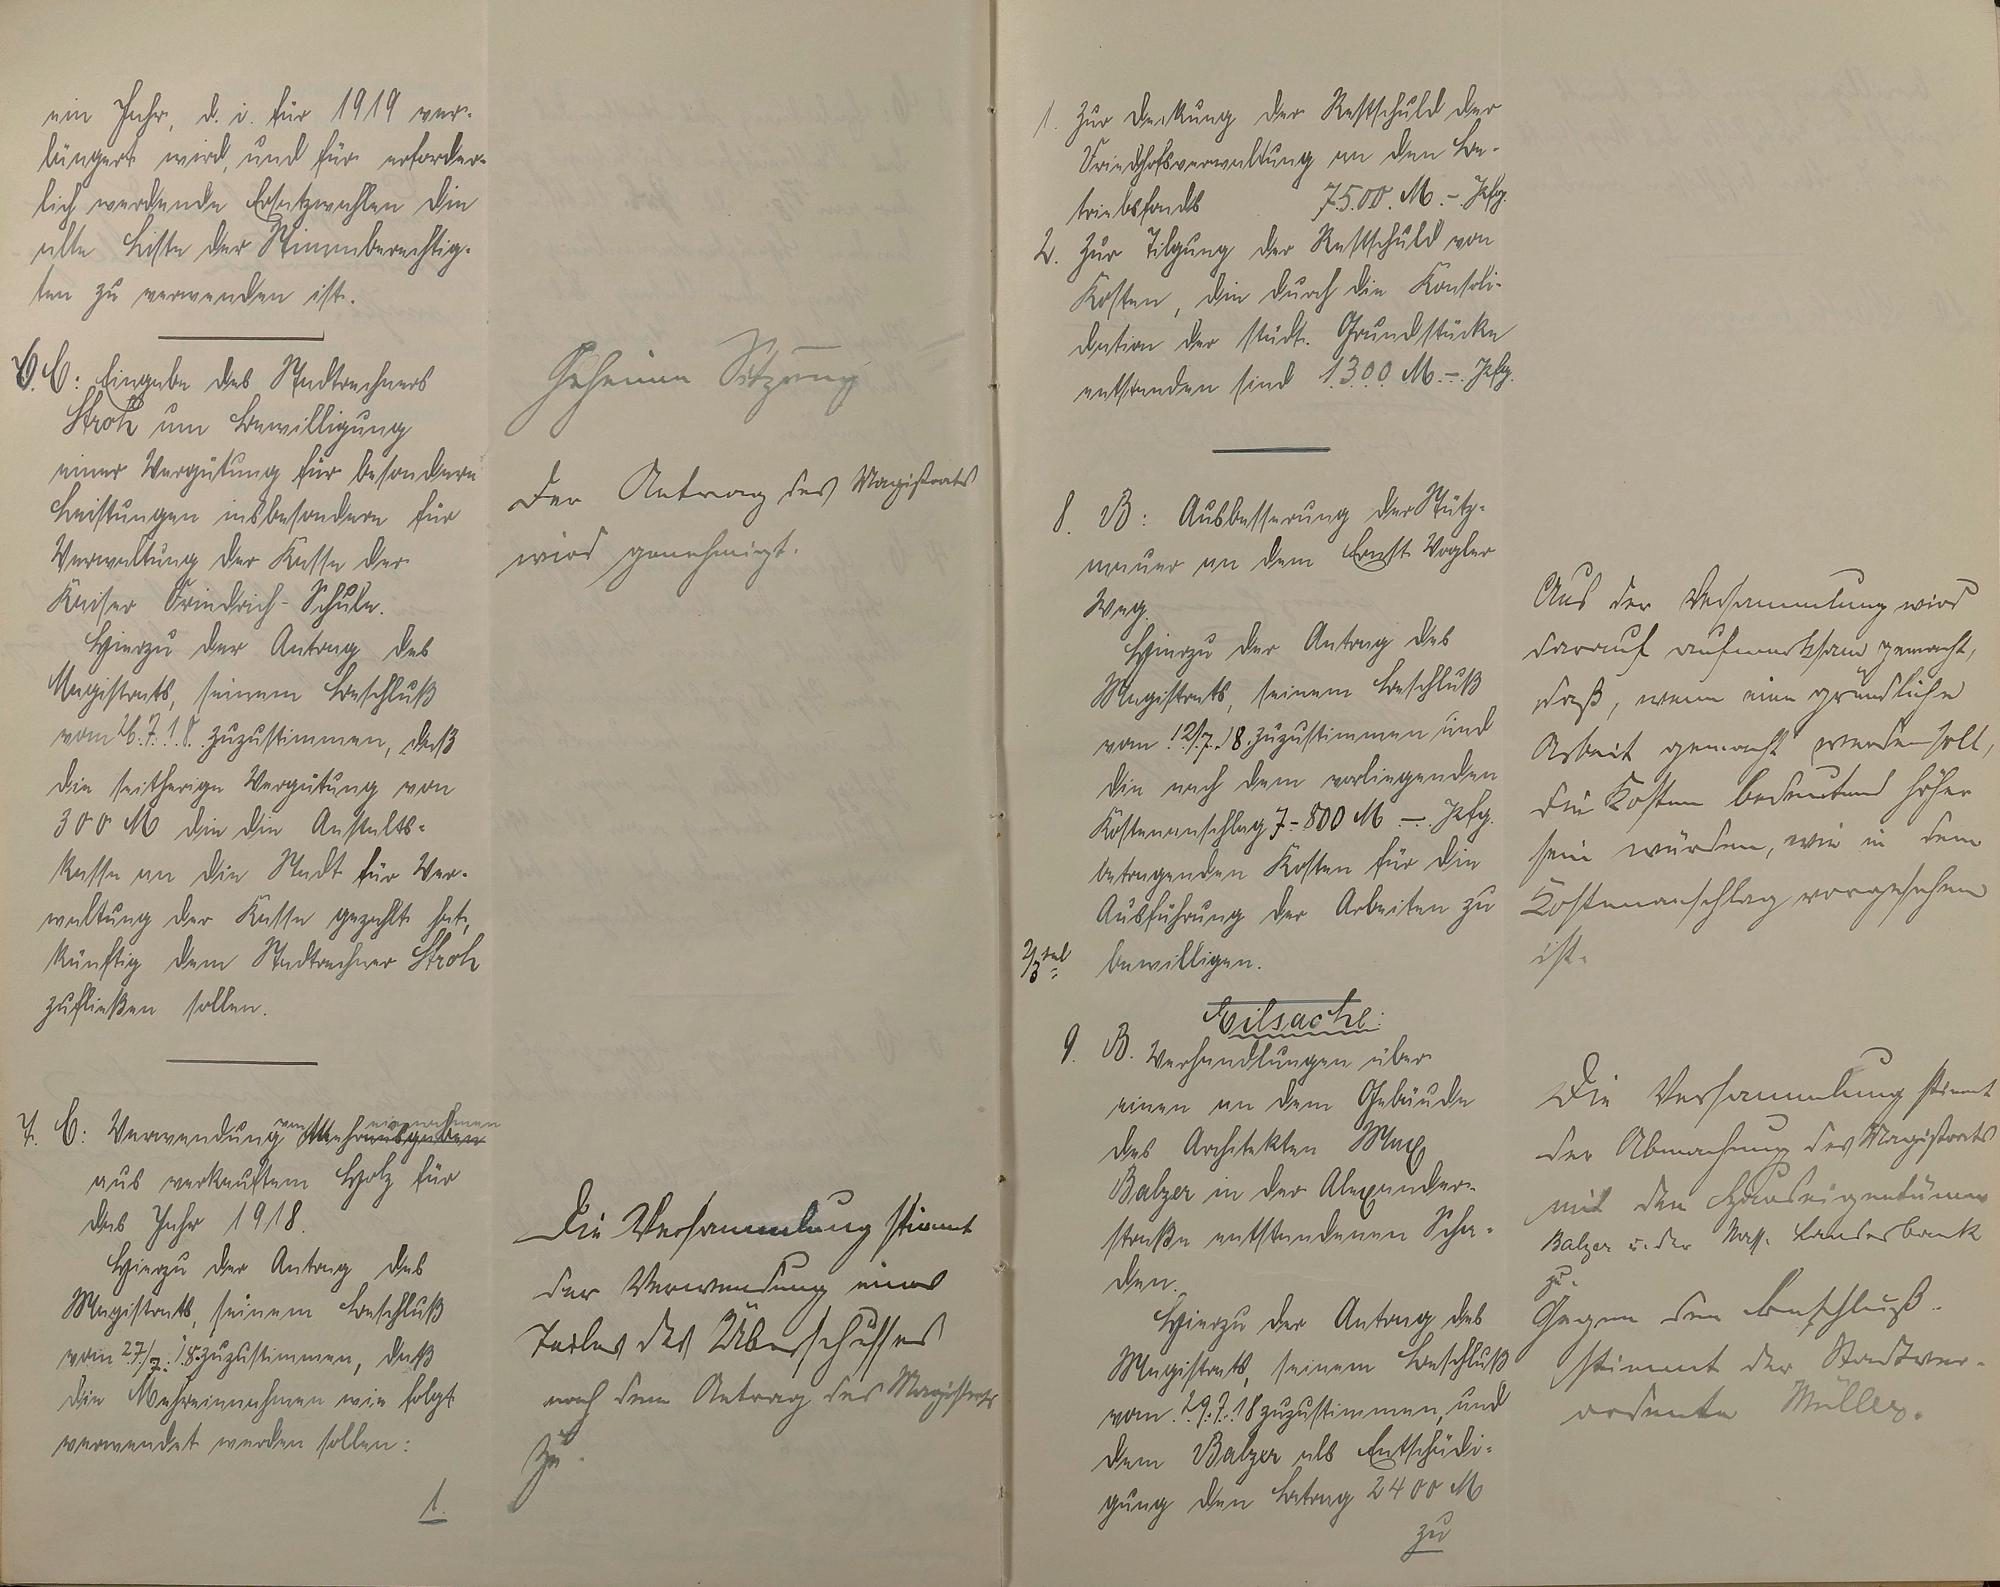 ein Jahr, d. i. für 1919 ver-
längert wird, und für erforder-
lich werdende Ersatzwahlen die
alte Liste der Stimmberechtig-
ten zu verwenden ist.
6. C: Eingabe des Stadtrechners
Stroh um Bewilligung
einer Vergütung für besondere
Leistungen insbesondere für
Verwaltung der Kasse der
Kaiser Friedrich-Schule.
Hierzu der Antrag des
Magistrats, seinem Beschluß
vom 26.7.18. zuzustimmen, daß
die seitherige Vergütung von
300 M die die Anstalts-
kasse an die Stadt für Ver-
waltung der Kasse gezahlt hat,
künftig dem Stadtrechner Stroh
zufließen sollen.
7. C: Verwendung von Mehrausgaben einnahmen
aus verkauftem Holz für
das Jahr 1918.
Hierzu der Antrag des
Magistrats, seinem Beschluß
vom 27/7.18. zuzustimmen, daß
die Mehreinnahmen wie folgt
verwendet werden sollen:
1.
Geheime Sitzung
Der Antrag des Magistrats
wird genehmigt.
Die Versammlung stimmt
der Verwendung eines
Teiles des Überschusses
nach dem Antrag des Magistrats
zu.
1. Zur Deckung der Restschuld der
Friedhofsverwaltung an den Be-
triebsfonds 7500 M. – Pfg.
2. Zur Tilgung der Restschuld von
Kosten, die durch die Konsoli-
dation der städt. Grundstücke
entstanden sind 1300 M. – Pfg.
8. B: Ausbesserung der Stütz-
mauer an dem Ernst Vogler
Weg.
Hierzu der Antrag des
Magistrats, seinem Beschluß
vom 12/7.18. zuzustimmen und
die nach dem vorliegenden
Kostenanschlag 7-800 M – Pfg.
betragenden Kosten für die
Ausführung der Arbeiten zu
bewilligen.
Eilsache:
9. B. Verhandlungen über
einen an dem Gebäude
des Architekten Max
Balzer in der Alexander-
straße entstandenen Scha-
den.
Hierzu der Antrag des
Magistrats, seinem Beschluß
vom 29.7.18 zuzustimmen, und
dem Balzer als Entschädi-
gung den Betrag 2400 M
zu
Aus der Versammlung wird
darauf aufmerksam gemacht,
daß, wenn eine gründliche
Arbeit gemacht werden soll,
die Kosten bedeutend höher
sein würden, wie in dem
Kostenanschlag vorgesehen
ist.
Die Versammlung stimmt
der Abmachung des Magistrats
mit den Hauseigentümer
Balzer u. der Nass. Landesbank
zu.
Gegen den Beschluß
stimmt der Stadtver-
ordnete Müller.